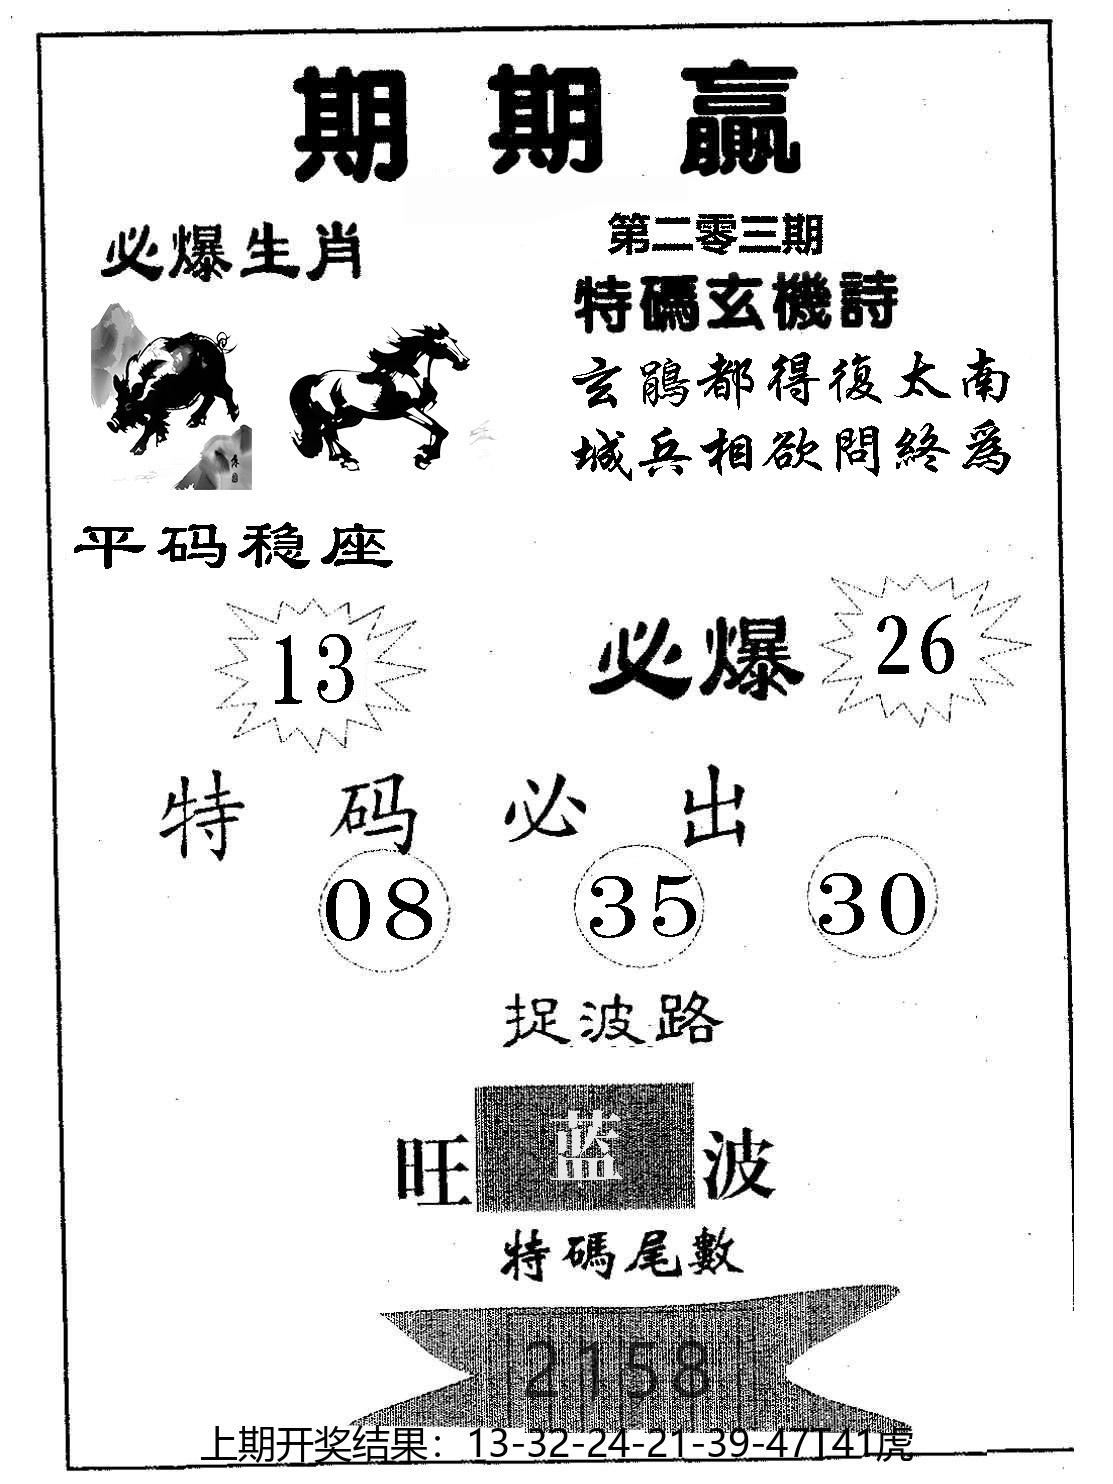 期期贏
必爆生肖
第二零三期
特碼玄機詩
玄鵑都得復太南
城兵相欲問終為
平码稳座
13
必爆
26
特码必出
08 35 30
捉波路
旺 蓝 波
特碼尾數
2158
上期开奖结果：13-32-24-21-39-47T41虎